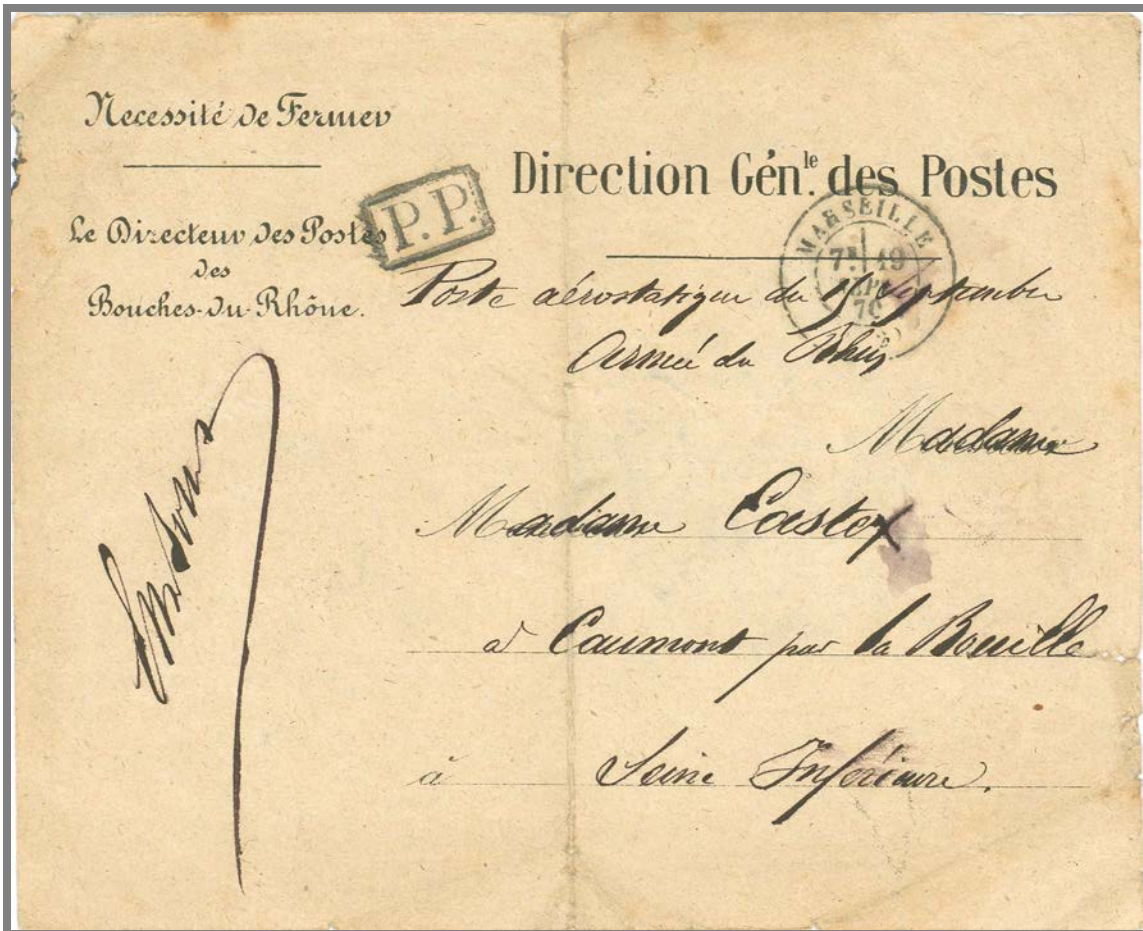 Necessité de Fermer
Le Directeur des Postes
des
Bouches-du-Rhône.
P.P.
Direction Gén.le des Postes
MARSEILLE
7E 19
SEPT
70
Poste aérostatique du septembre
Armée du Rhin
Madame
Madame Castex
à Caumont par la Bouille
à Seine Inférieure.